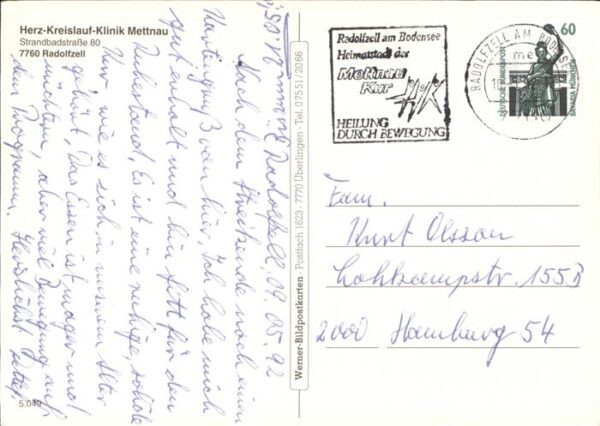 Herz-Kreislauf-Klinik Mettnau
Strandbadstraße 80
7760 Radolfzell
Radolfzell, 09.05.92
Nach dem Streikende noch ein
von hier. Ich habe mich
gut erholt und bin fit für den
Ruhestand. Es ist eine ruhige, schöne
Kur, wie es sich in unserem Alter
gehört. Das Essen ist mager und
nüchtern, aber viel Bewegung auf
dem Programm. Herzlichst
5.040
Werner-Bildpostkarten · Postfach 1623 · 7770 Überlingen · Tel. 07551/2066
Radolfzell am Bodensee
Heimatstadt der
Mettnau
Kur
HEILUNG
DURCH BEWEGUNG
RADOLFZELL AM BODENSEE
60
DEUTSCHE BUNDESPOST
Fam.
Kurt Olsson
Lohkampstr. 155B
2000 Hamburg 54